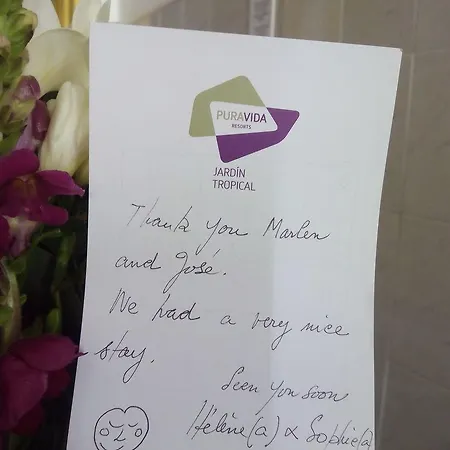 PURAVIDA
RESORTS
JARDÍN
TROPICAL
Thank you Marlen
and José.
We had a very nice
stay.
Seen you soon
Hélène(a) & Sophie(a)